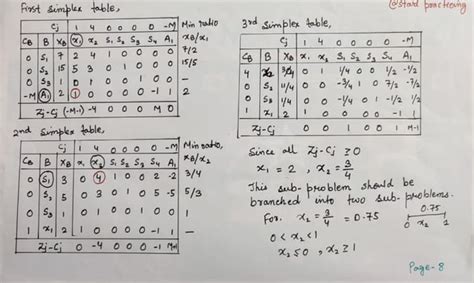 First simplex table,
Cj 1 4 0 0 0 0 -M Min ratio
CB B XB x1 x2 S1 S2 S3 S4 A1 XB/x1
0 S1 7 2 4 1 0 0 0 0 7/2
0 S2 15 5 3 0 1 0 0 0 15/5
0 S3 1 0 1 0 0 1 0 0 —
-M A1 2 1 0 0 0 0 -1 1 2
Zj-Cj (-M-1) -4 0 0 0 M 0
2nd simplex table,
Cj 1 4 0 0 0 0 -M Min ratio,
CB B XB x1 x2 S1 S2 S3 S4 A1 XB/x2
0 S1 3 0 4 1 0 0 2 -2 3/4
0 S2 5 0 3 0 1 0 5 -5 5/3
0 S3 1 0 1 0 0 1 0 0 1
1 x1 2 1 0 0 0 0 -1 1 —
Zj-Cj 0 -4 0 0 0 -1 M+1
@start practicing
3rd simplex table,
Cj 1 4 0 0 0 0 -M
CB B XB x1 x2 S1 S2 S3 S4 A1
4 x2 3/4 0 1 1/4 0 0 1/2 -1/2
0 S2 11/4 0 0 -3/4 1 0 7/2 -7/2
0 S3 1/4 0 0 -1/4 0 1 -1/2 1/2
1 x1 2 1 0 0 0 0 -1 1
Zj-Cj 0 0 1 0 0 1 M-1
Since all Zj-Cj ≥0
x1 = 2 , x2 = 3/4
This sub-problem should be
branched into two sub-problems.
For, x2 = 3/4 = 0.75
0.75
0 x2 1
0 < x2 < 1
x2≤0 , x2 ≥ 1
Page-8